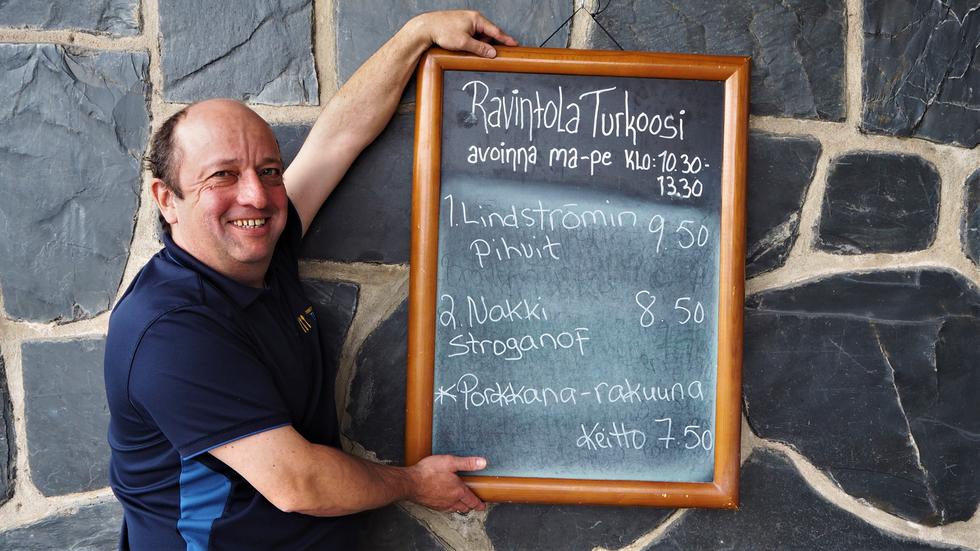 Ravintola Turkoosi
avoinna ma-pe KLO: 10.30-
13.30
1. Lindströmin 9.50
Pihvit
2. Nakki 8.50
Stroganof
*Porkkana-rakuuna
Keitto 7.50